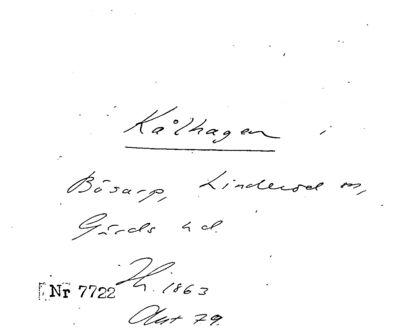 Kålhagen
Bösarp, Linderöd sn,
Gärds hd.
Nr 7722 Th. 1863
Akt 79.